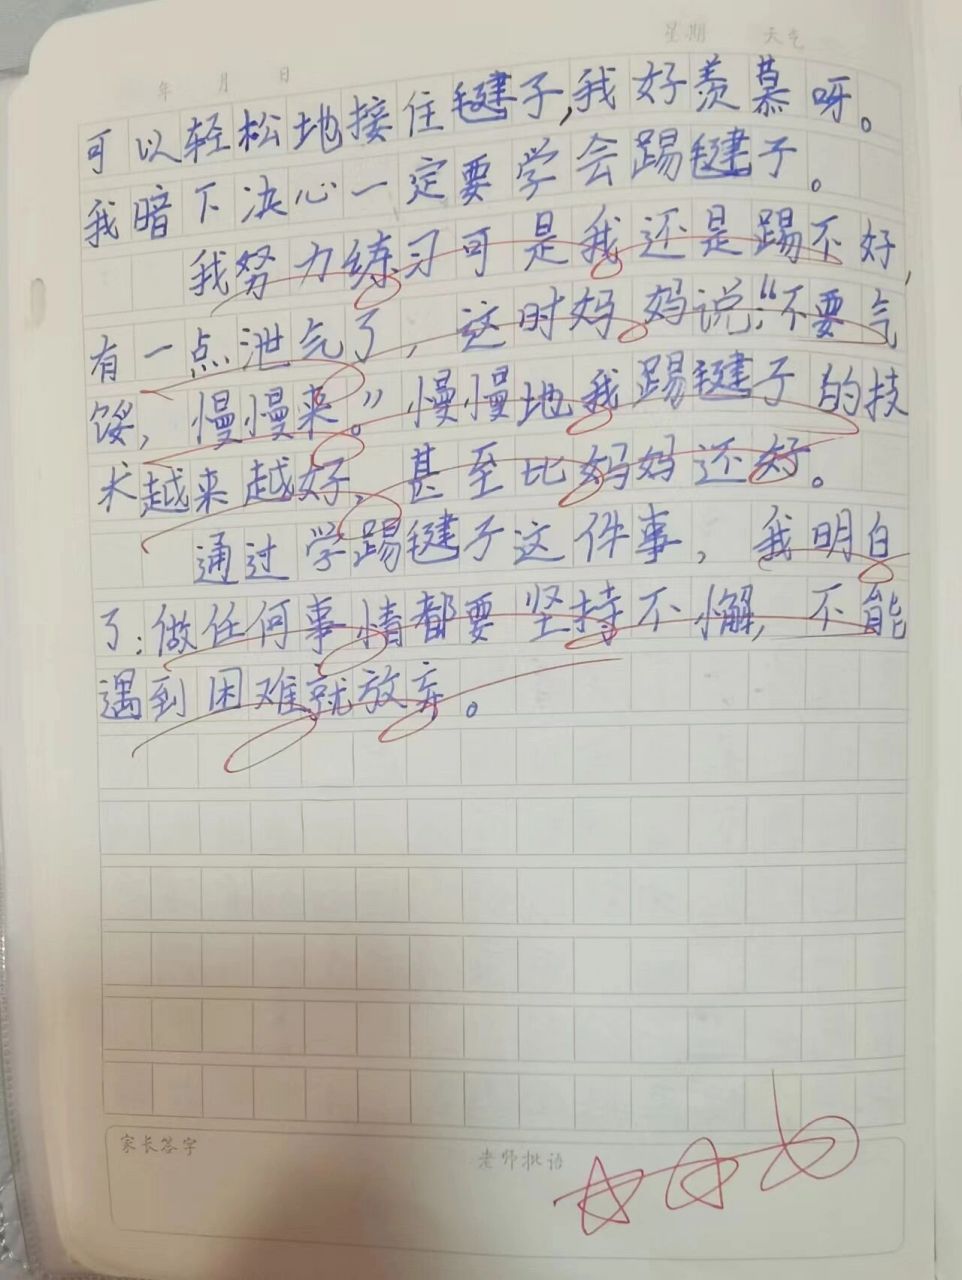 星期 天气
年 月 日
可以轻松地接住毽子,我好羡慕呀。
我暗下决心一定要学会踢毽子。
我努力练习可是我还是踢不好,
有一点泄气了,这时妈妈说:“不要气
馁,慢慢来。”慢慢地我踢毽子的技
术越来越好,甚至比妈妈还好。
通过学踢毽子这件事,我明白
了:做任何事情都要坚持不懈,不能
遇到困难就放弃。
家长签字 老师批语